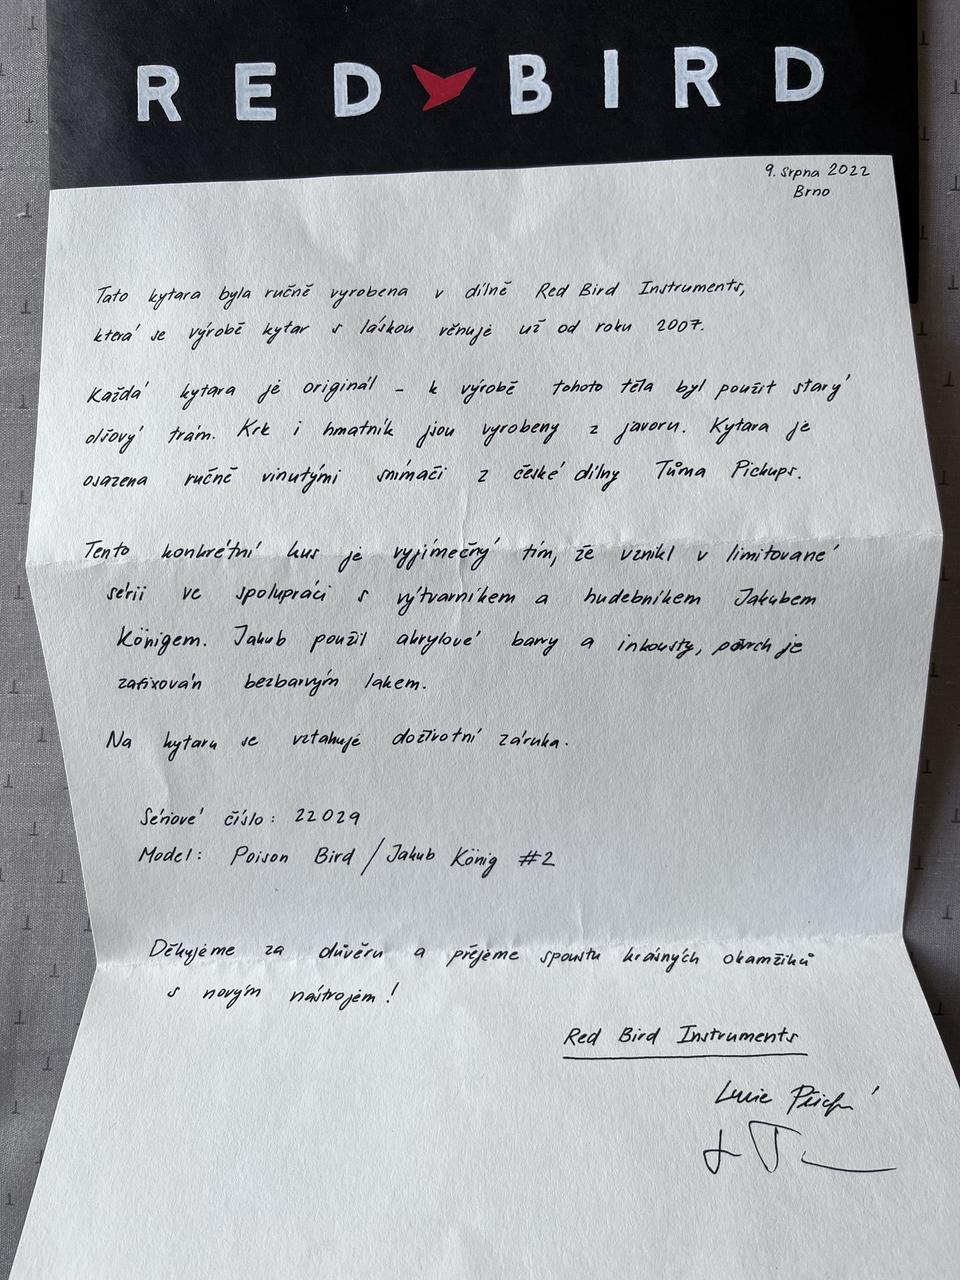 RED BIRD
9. srpna 2022
Brno
Tato kytara byla ručně vyrobena v dílně Red Bird Instruments,
která se výrobě kytar s láskou věnuje už od roku 2007.
Každá kytara je originál – k výrobě tohoto těla byl použit starý
olšový trám. Krk i hmatník jsou vyrobeny z javoru. Kytara je
osazena ručně vinutými snímači z české dílny Tůma Pickups.
Tento konkrétní kus je vyjímečný tím, že vznikl v limitované
sérii ve spolupráci s výtvarníkem a hudebníkem Jakubem
Königem. Jakub použil akrylové barvy a inkousty, povrch je
zafixován bezbarvým lakem.
Na kytaru se vztahuje doživotní záruka.
Sériové číslo: 22029
Model: Poison Bird / Jakub König #2
Děkujeme za důvěru a přejeme spoustu krásných okamžiků
s novým nástrojem!
Red Bird Instruments
Lucie